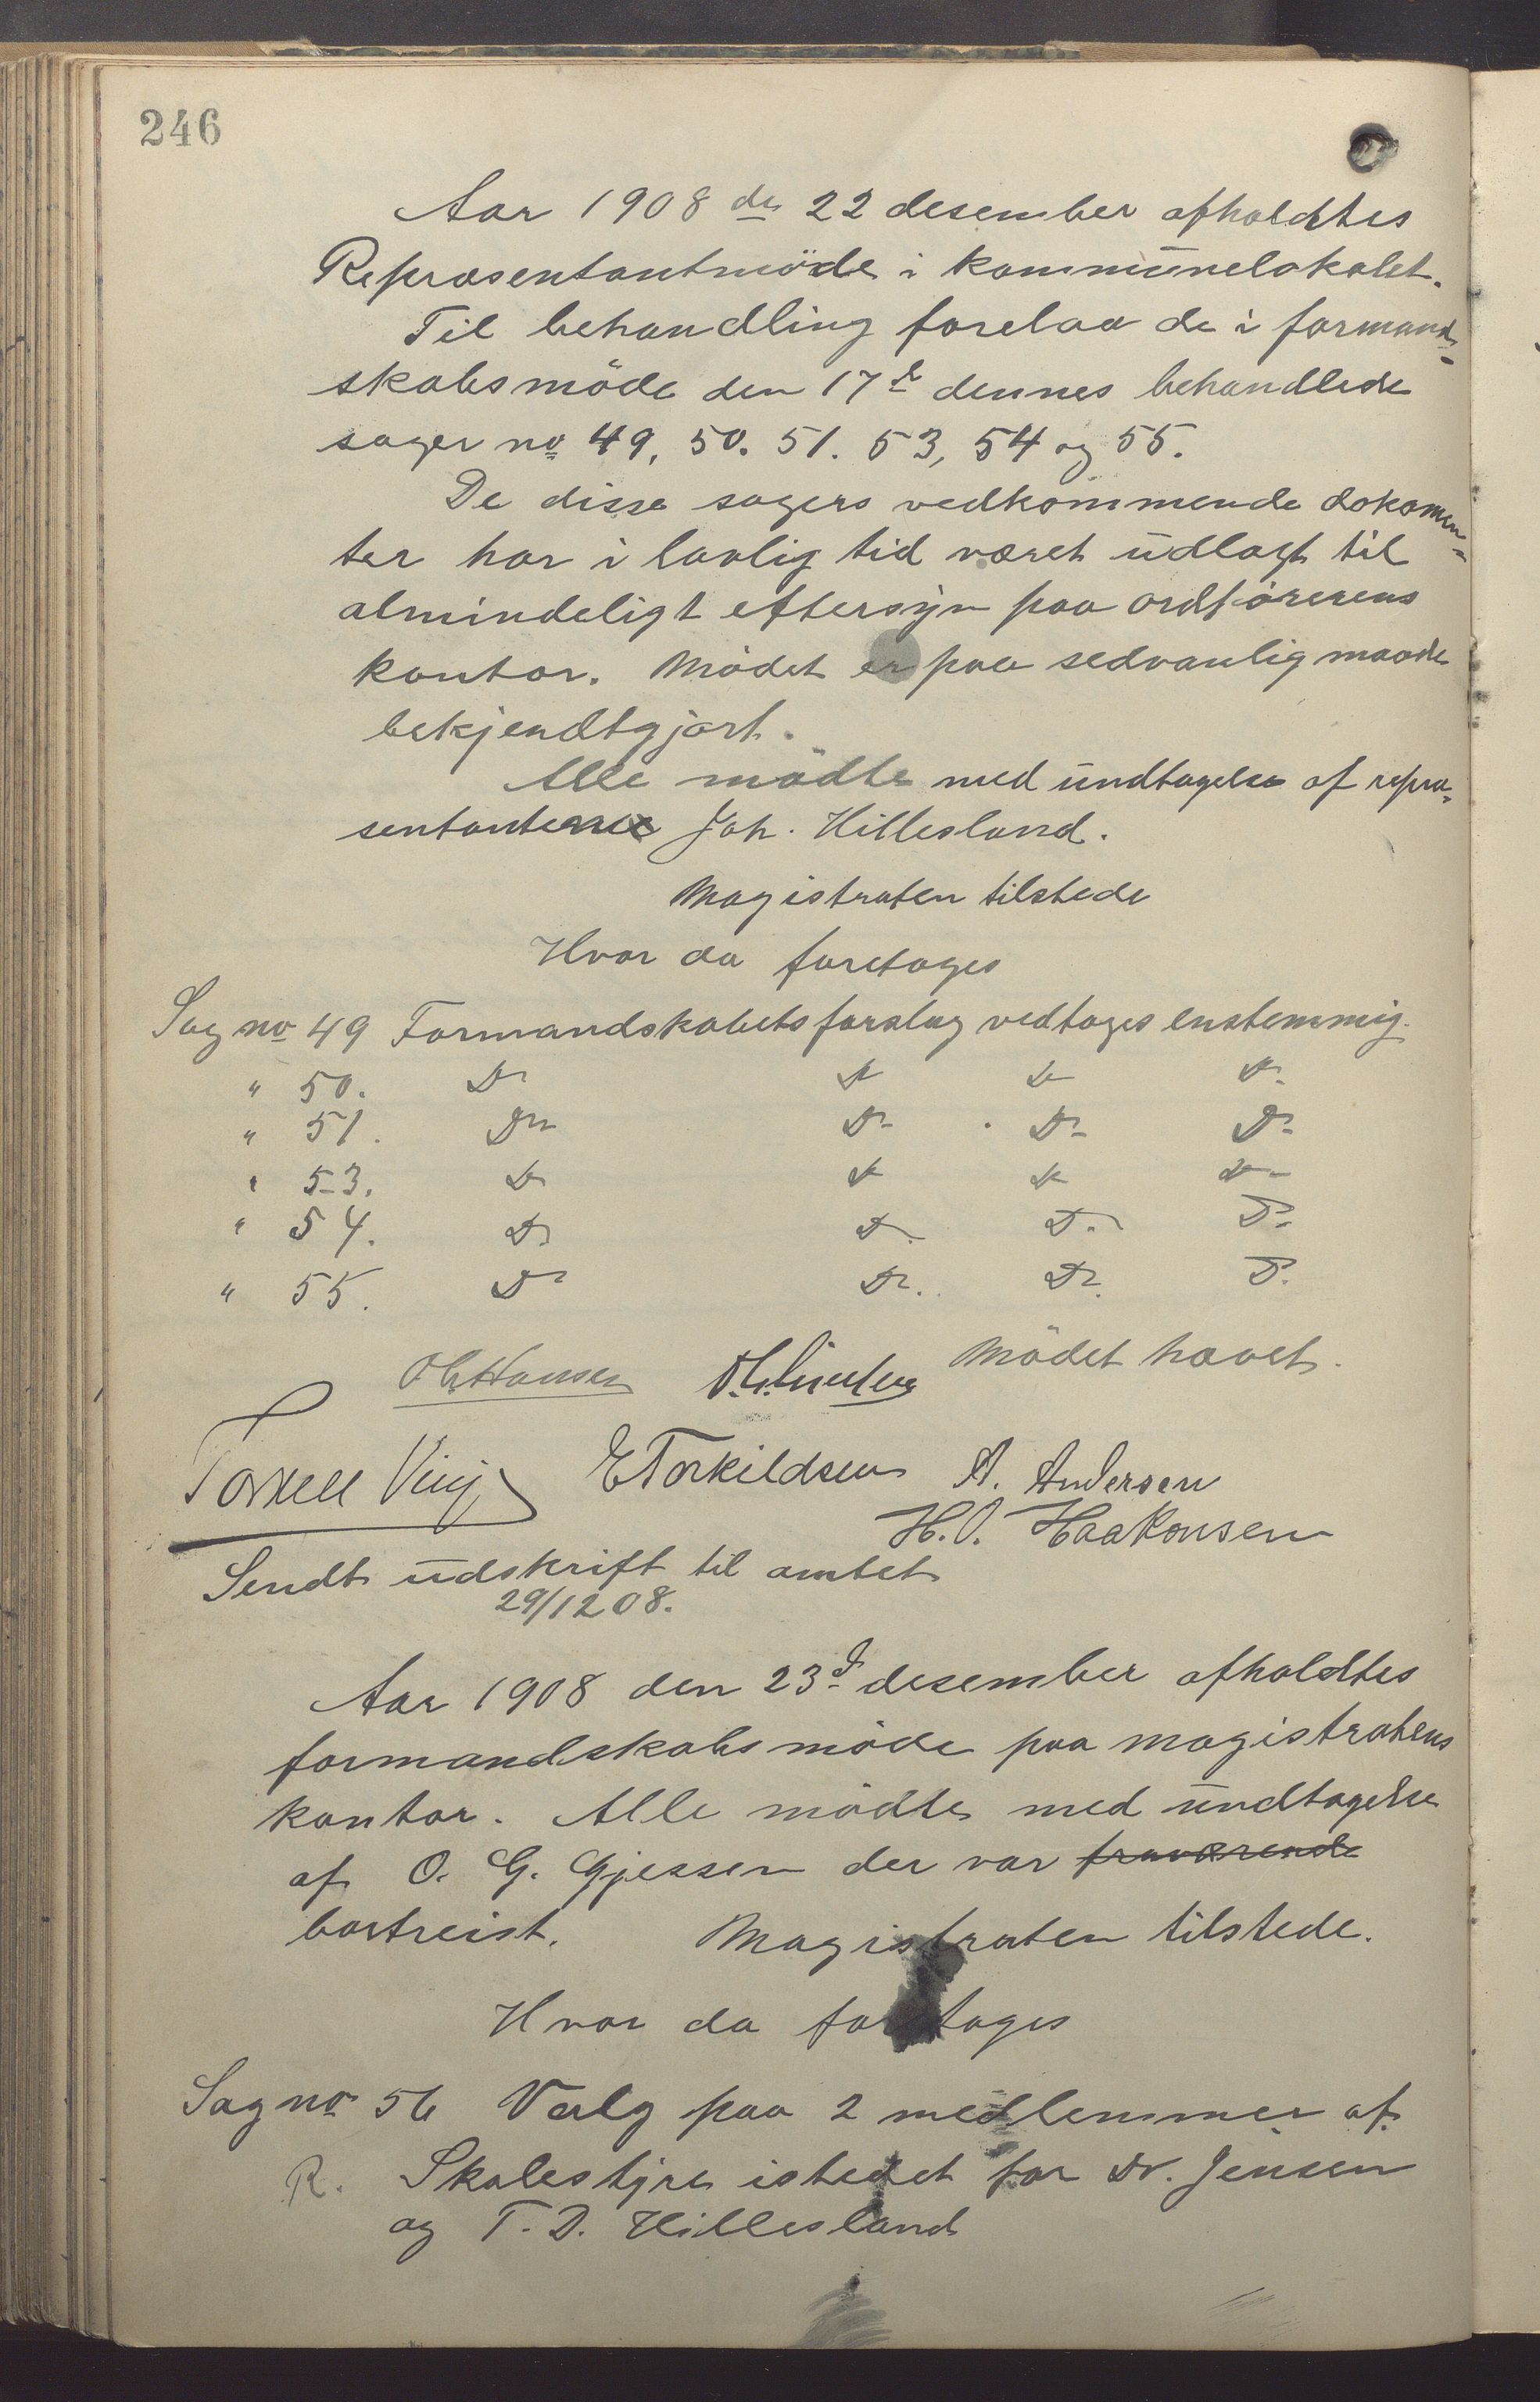 246
Aar 1908 den 22 desember afholdtes
Repræsentantmöde i kommunelokalet.
Til behandling forelaa de i formand-
skabsmöde den 17de dennes behandlede
sager no 49, 50. 51. 53, 54 og 55.
De disse sagers vedkommende dokomen-
ter har i lovlig tid været udlagt til
almindeligt eftersyn paa ordförerens
kontor. Mödet er paa sedvanlig maade
bekjendtgjort.
Alle mödte med undtagelse af repræ-
sentanterne Joh. Hillesland.
Magistraten tilstede
Hvor da foretages
Sag no 49 Formandskabets forslag vedtages enstemmig.
" 50. Do Do Do Do
" 51. Do Do Do Do
" 53. Do Do Do Do
" 54. Do Do Do Do
" 55. Do Do Do Do
Mödet hævet.
Ole Hansen
Torkell Vinje E Torkildsen A. Andersen
H. O. Haakonsen
Sendt udskrift til amtet
29/12 08.
Aar 1908 den 23de desember afholdtes
formandskabsmöde paa magistratens
kontor. Alle mödte med undtagelse
af O. G. Gjessen der var fraværende
bortreist. Magistraten tilstede.
Hvor da foretages
Sag no 56 Valg paa 2 medlemmer af
R. Skolestyre istedet for Dr. Jensen
og T. D. Hillesland